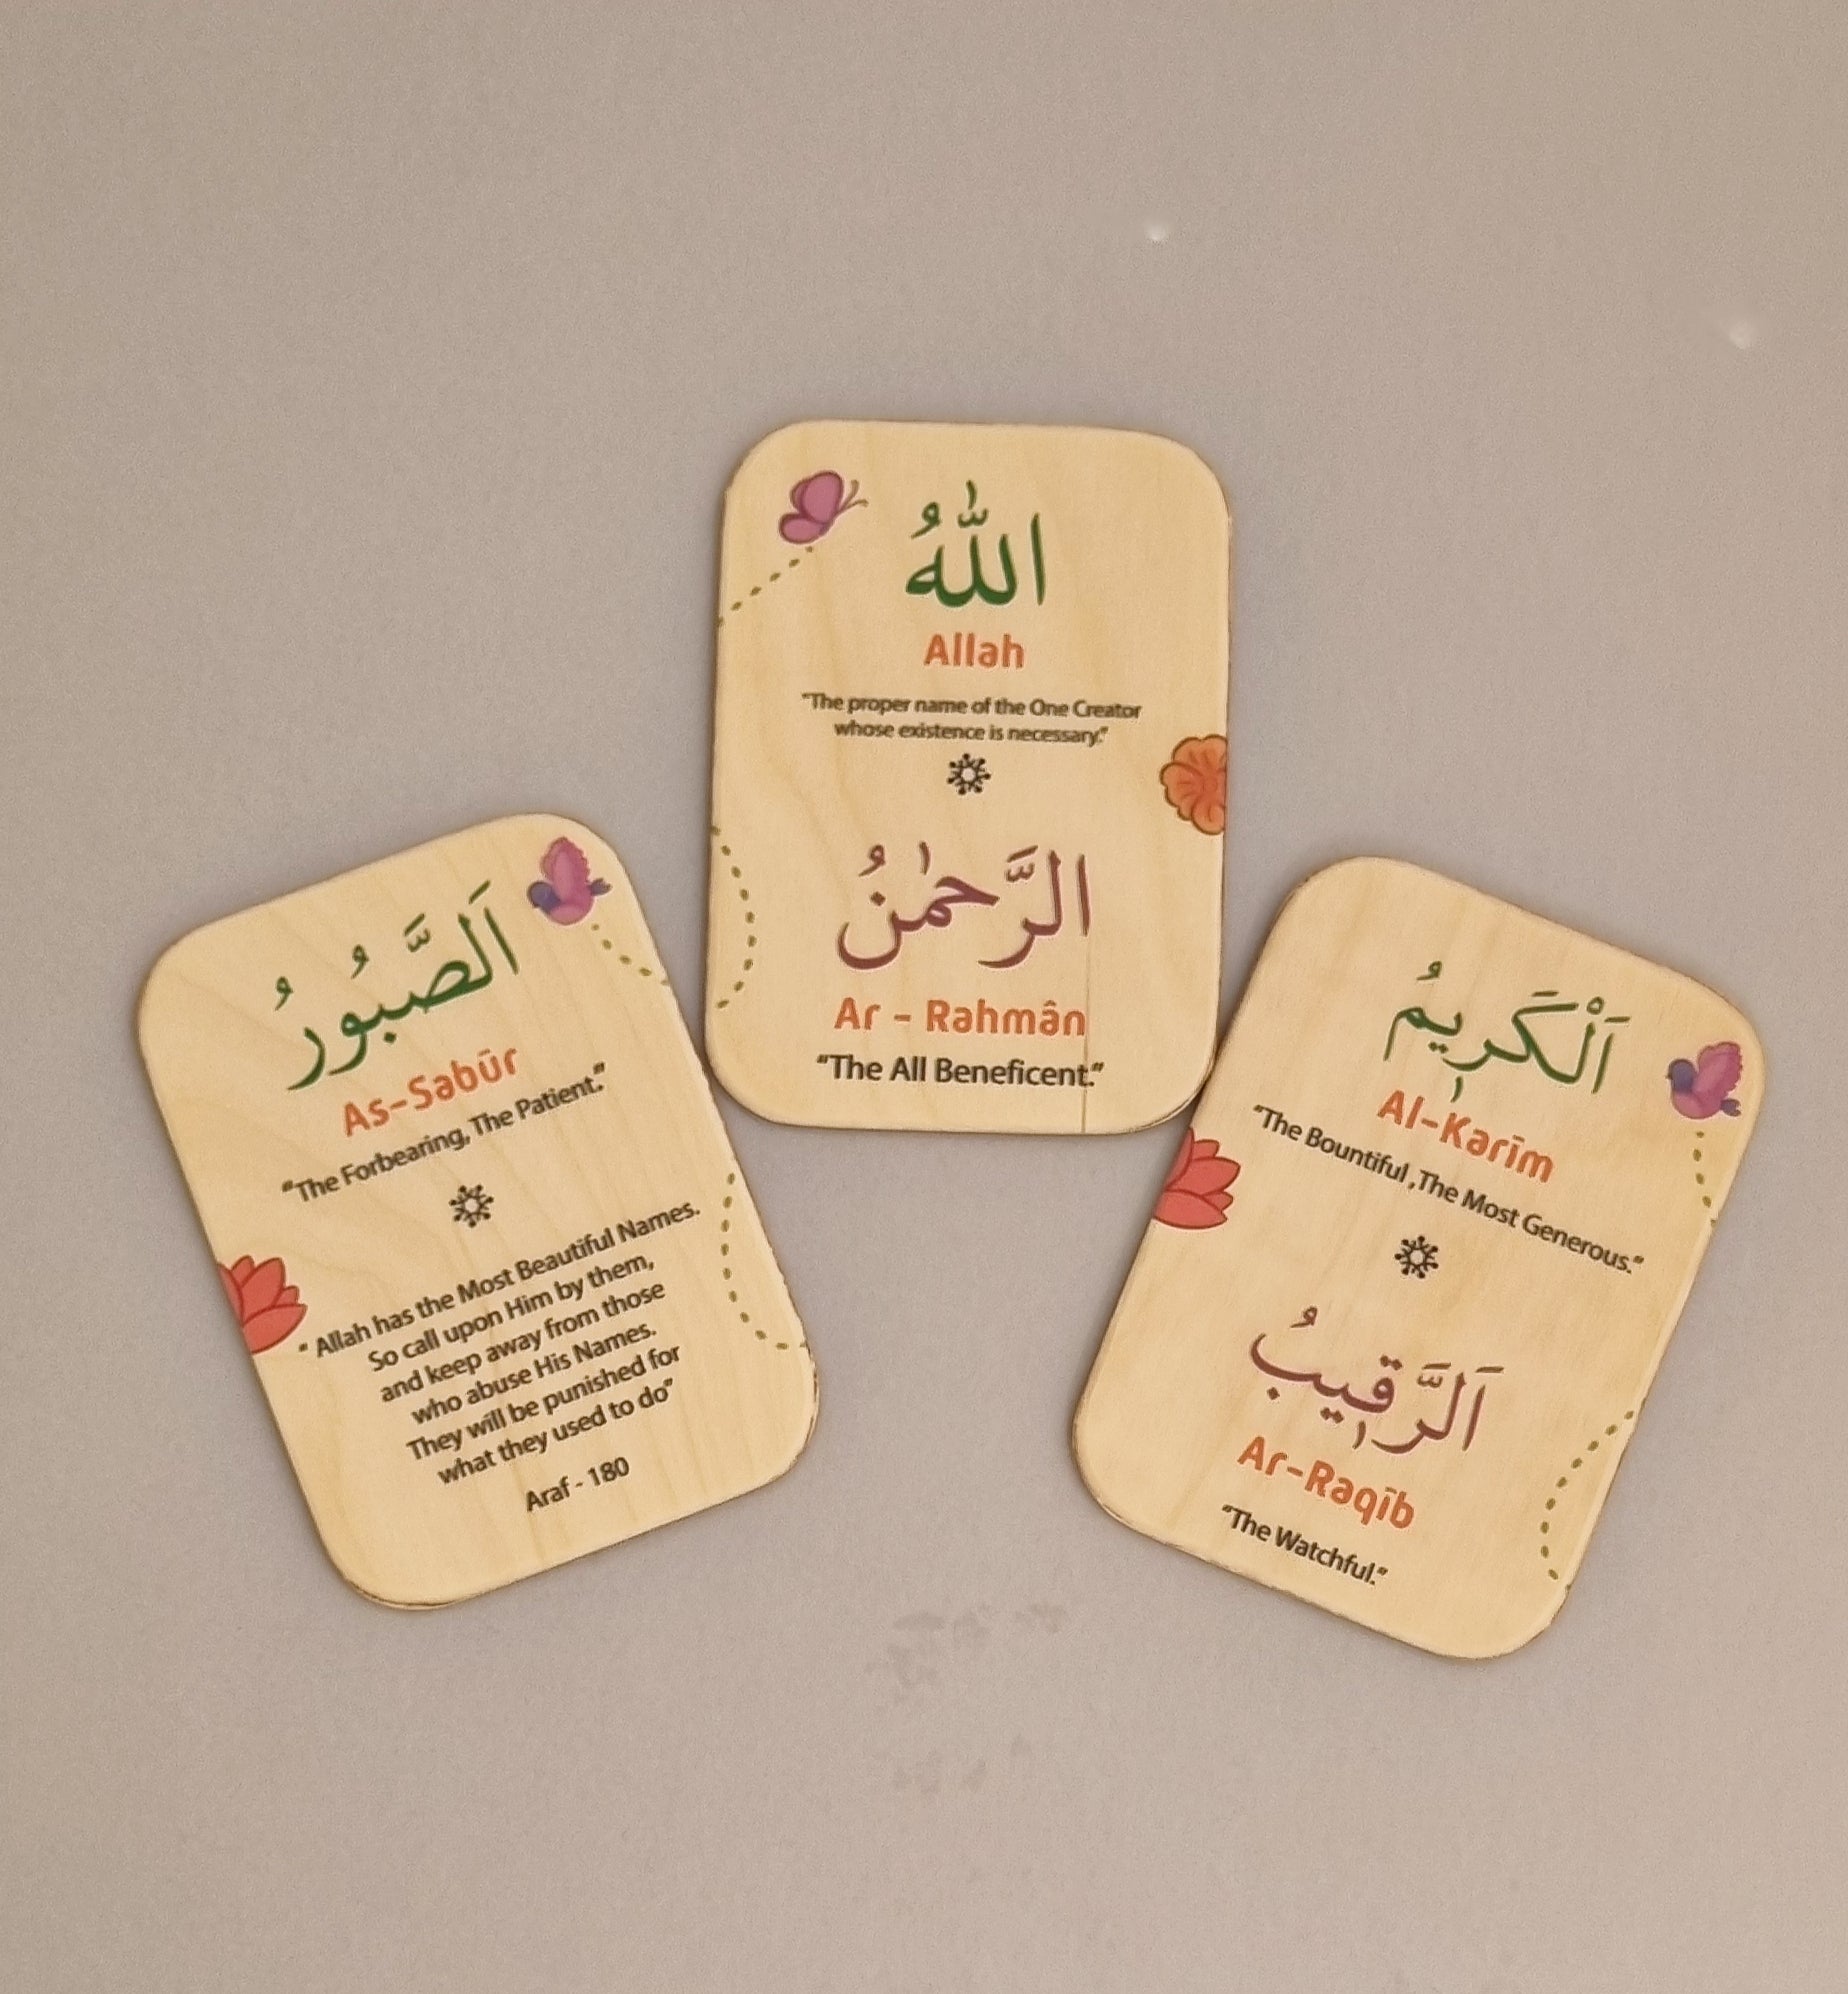 اللّٰهُ
Allah
"The proper name of the One Creator
whose existence is necessary."
الرَّحمٰنُ
Ar - Rahmân
"The All Beneficent."
اَلصَّبُورُ
As-Sabūr
"The Forbearing, The Patient."
" Allah has the Most Beautiful Names.
So call upon Him by them,
and keep away from those
who abuse His Names.
They will be punished for
what they used to do"
Araf - 180
اَلْكَرِيمُ
Al-Karīm
"The Bountiful ,The Most Generous."
اَلرَّقِيبُ
Ar-Raqīb
"The Watchful."